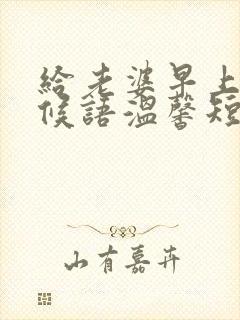 給老婆早上
候語溫馨短
山有嘉卉